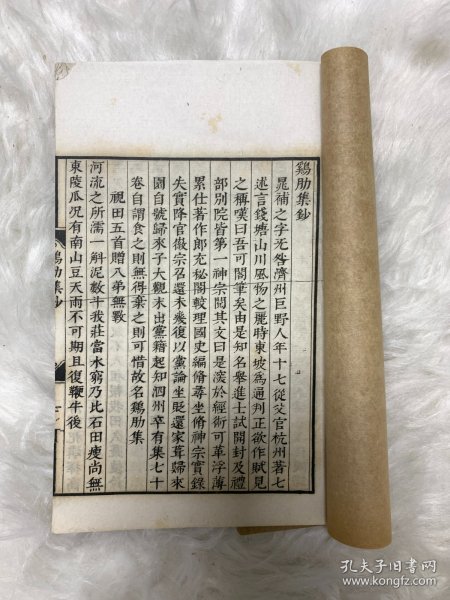 鷄肋集鈔
晁補之字无咎濟州巨野人年十七從父官杭州著七
述言錢塘山川風物之麗時東坡爲通判正欲作賦見
之稱嘆曰吾可閣筆矣由是知名舉進士試開封及禮
部別院皆第一神宗閱其文曰是深於經術可革浮薄
累仕著作郎充秘閣校理國史編脩尋坐脩神宗實錄
失實降官徽宗召還未幾復以黨論坐貶還家葺歸來
園自號歸來子大觀末出黨籍起知泗州卒有集七十
卷自謂食之則無得棄之則可惜故名鷄肋集
視田五首贈八弟無斁
河流之所濡一斛泥數斗我莊當水窮乃比石田瘦尚無
東陵瓜况有南山豆天雨不可期且復鞭牛後
鷄肋集鈔
孔夫子旧书网
www.kongfz.com